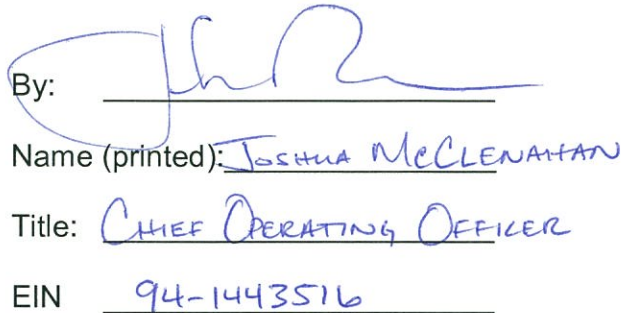 By:
Name (printted): Joshua McClenahan
Title: Chief Operating Officer
EIN 94-1443516